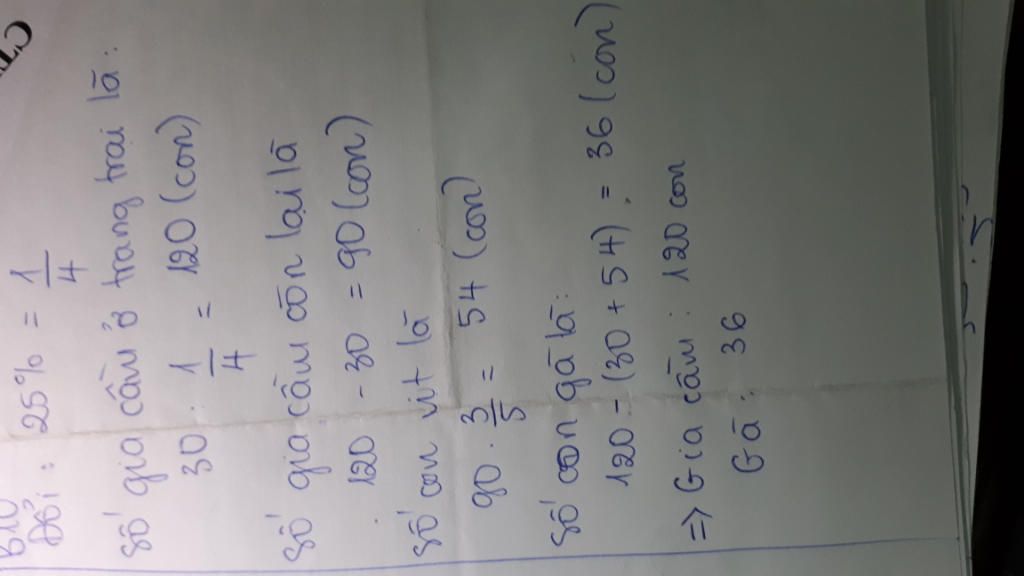 B10
Đổi : 25% = 1/4
Số gia cầm ở trang trại là :
30 : 1/4 = 120 (con)
Số gia cầm còn lại là
120 - 30 = 90 (con)
Số con vịt là
90 . 3/5 = 54 (con)
Số con gà là :
120 - (30 + 54) = 36 (con)
=> Gia cầm : 120 con
Gà : 36